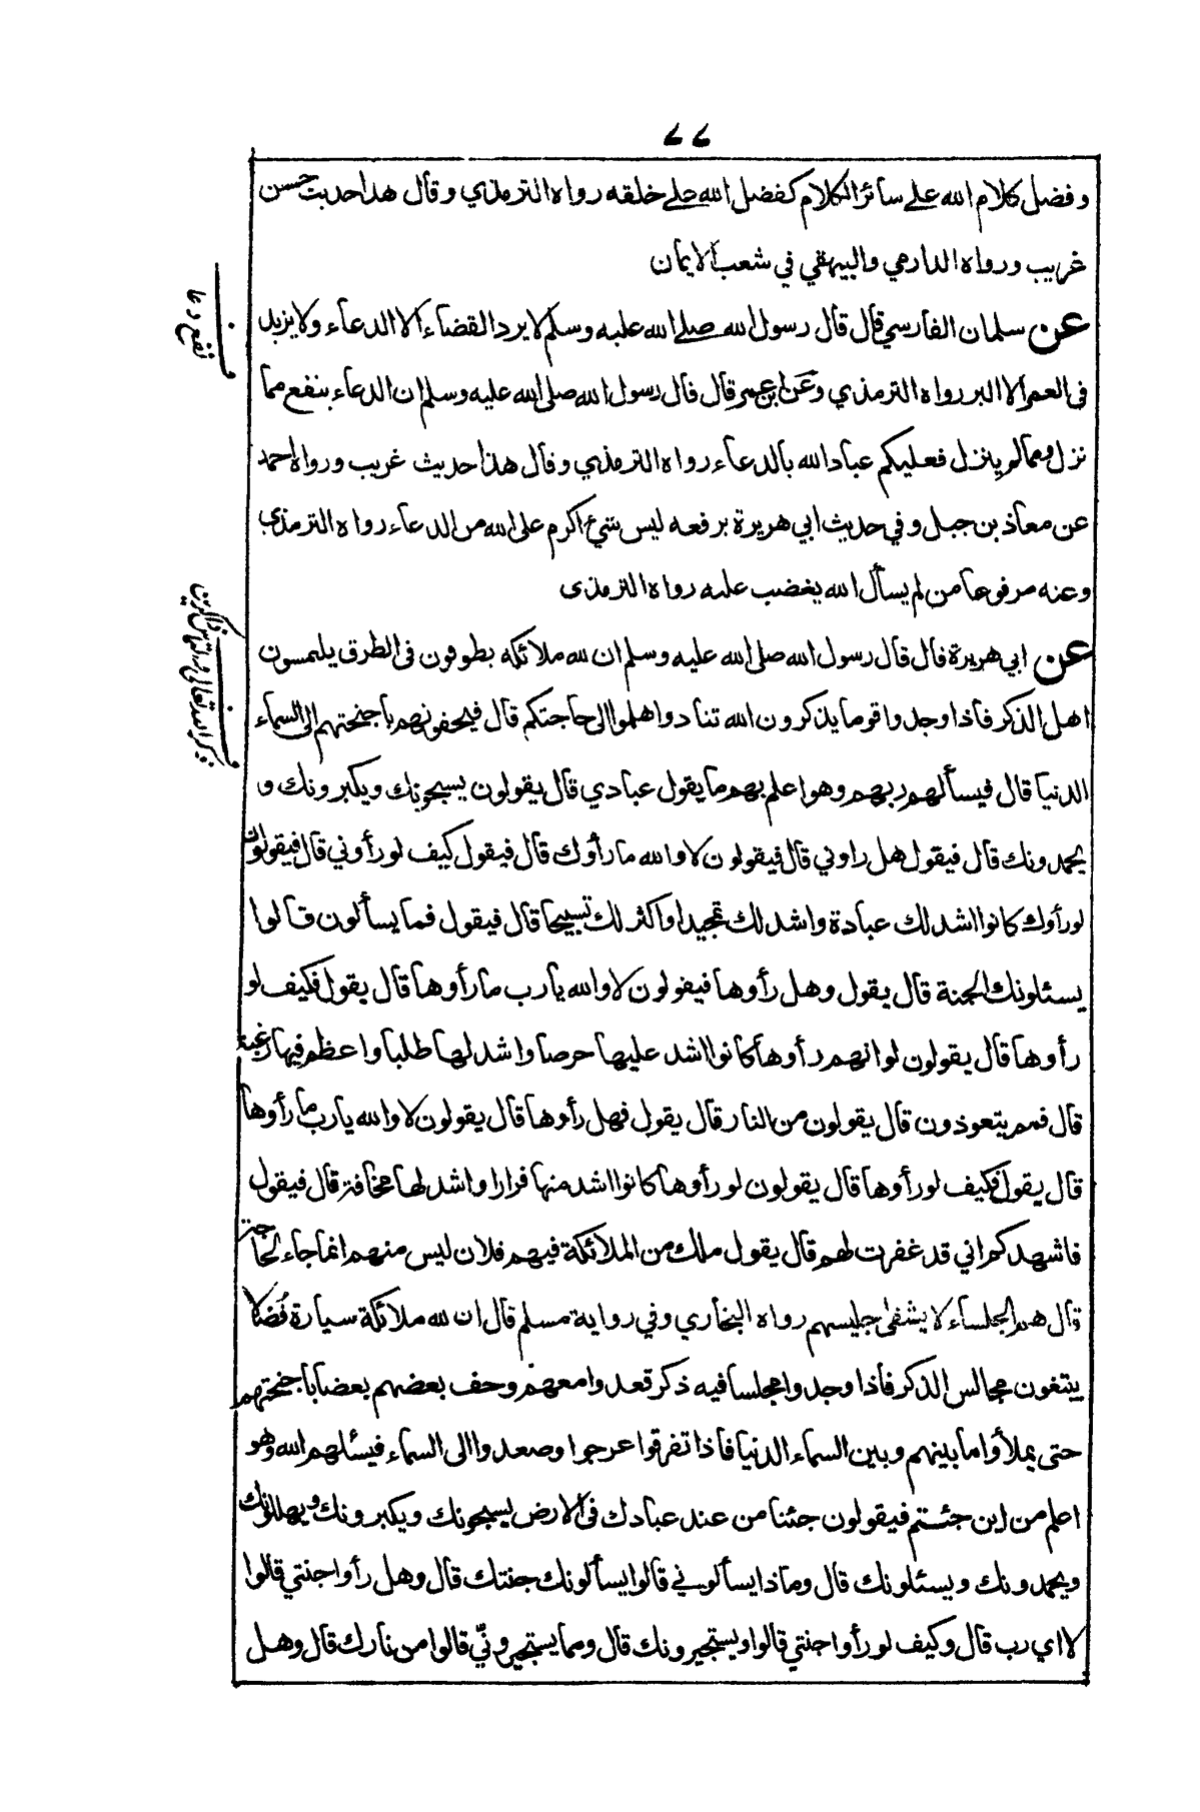 ٧٧
وفضل كلام الله علے سائر الكلام كفضل الله علے خلقه رواه الترمذي وقال هذا حديث حسن
غريب ورواه الدارمي والبيهقي في شعب الايمان
عن سلمان الفارسي قال قال رسول الله صلے الله عليه وسلم لا يرد القضاء الا الدعاء ولا يزيد
نفع دعا
فى العمر الا البر رواه الترمذي وعن ابن عمر قال قال رسول الله صلى الله عليه وسلم ان الدعاء ينفع مما
نزل ومما لم ينزل فعليكم عباد الله بالدعاء رواه الترمذي وقال هذا حديث غريب ورواه احمد
عن معاذ بن جبل وفي حديث ابي هريرة يرفعه ليس شيء اكرم على الله من الدعاء رواه الترمذي
وعنه مرفوعا من لم يسأل الله يغضب عليه رواه الترمذى
عن ابي هريرة قال قال رسول الله صلى الله عليه وسلم ان لله ملائكه يطوفون فى الطرق يلتمسون
اهل الذكر فاذا وجدوا قوما يذكرون الله تنادوا هلموا الى حاجتكم قال فيحفونهم باجنحتهم الى السماء
الدنيا قال فيسألهم ربهم وهو اعلم بهم ما يقول عبادي قال يقولون يسبحونك ويكبرونك و
يحمدونك قال فيقول هل راوني قال فيقولون لا والله ما رأوك قال فيقول كيف لو رأوني قال فيقولون
لو رأوك كانوا اشد لك عبادة واشد لك تمجيدا واكثر لك تسبيحا قال فيقول فما يسألون قالوا
يسئلونك الجنة قال يقول وهل رأوها فيقولون لا والله يا رب ما رأوها قال يقول فكيف لو
رأوها قال يقولون لو انهم رأوها كانوا اشد عليها حرصا واشد لها طلبا واعظم فيها رغبة
قال فمم يتعوذون قال يقولون من النار قال يقول فهل رأوها قال يقولون لا والله يا رب ما رأوها
قال يقول فكيف لو رأوها قال يقولون لو رأوها كانوا اشد منها فرارا واشد لها مخافة قال فيقول
فاشهدكم اني قد غفرت لهم قال يقول ملك من الملائكة فيهم فلان ليس منهم انما جاء لحاجته
قال هم الجلساء لا يشقى جليسهم رواه البخاري وفي رواية مسلم قال ان لله ملائكة سيارة فُضَلا
يبتغون مجالس الذكر فاذا وجدوا مجلسا فيه ذكر قعدوا معهم وحف بعضهم بعضا باجنحتهم
حتى يملأوا ما بينهم وبين السماء الدنيا فاذا تفرقوا عرجوا وصعدوا الى السماء فيسئلهم الله وهو
اعلم من اين جئتم فيقولون جئنا من عند عبادك فى الارض يسبحونك ويكبرونك ويهللونك
ويحمدونك ويسئلونك قال وماذا يسألوني قالوا يسألونك جنتك قال وهل رأوا جنتي قالوا
لا اي رب قال وكيف لو رأوا جنتي قالوا ويستجيرونك قال ومما يستجيروني قالوا من نارك قال وهل